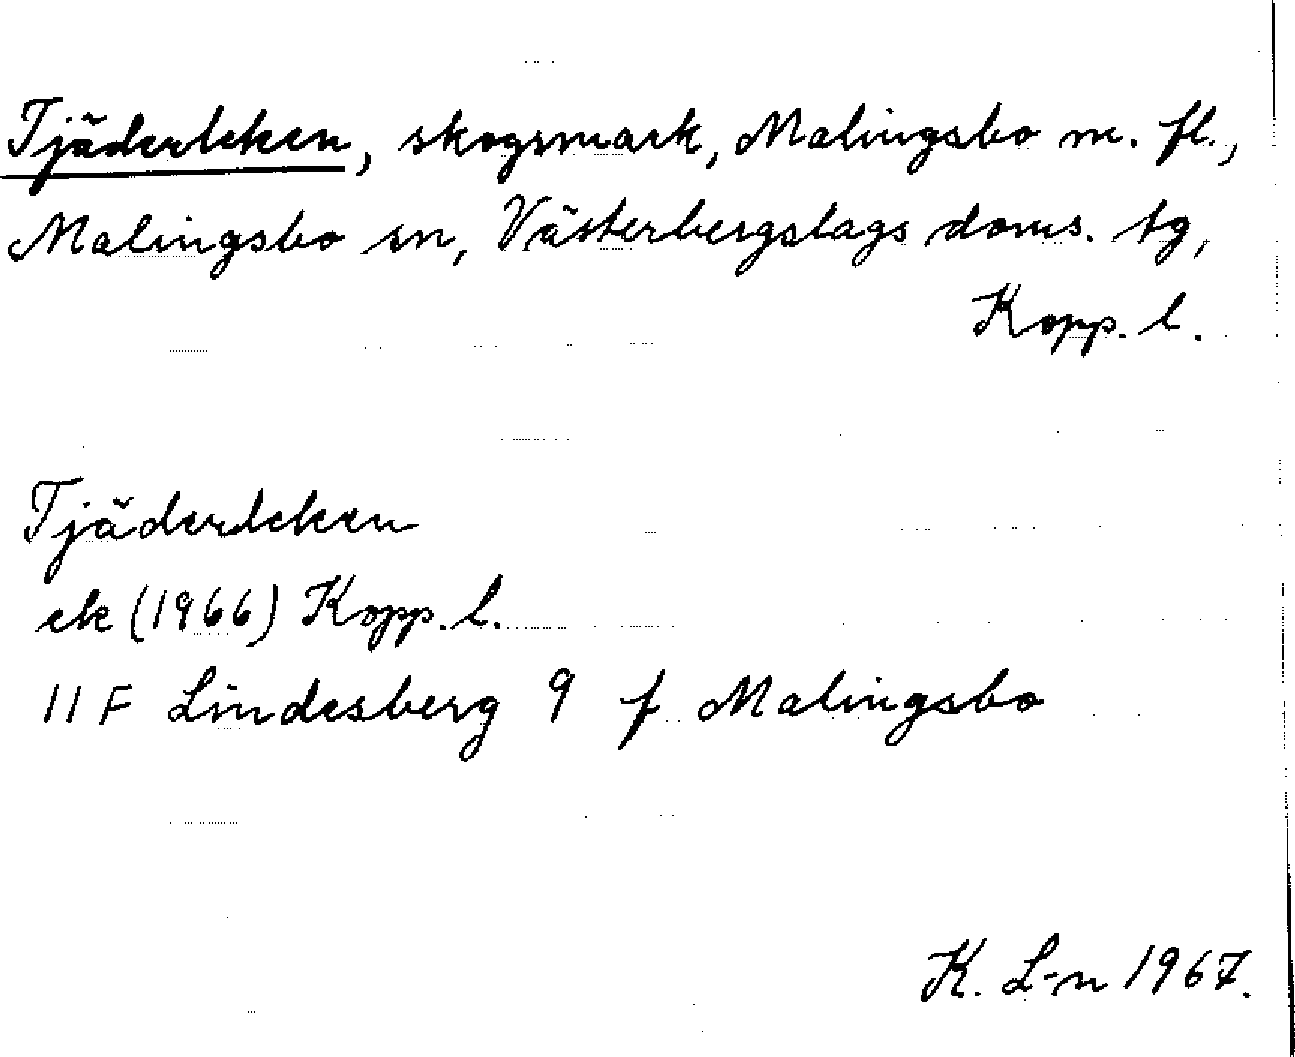 Tjäderleken, skogsmark, Malingsbo m. fl.,
Malingsbo sn, Västerbergslags doms. tg,
Kopp. l.
Tjäderleken
ek (1966) Kopp. l.
11 F Lindesberg 9 f Malingsbo
K. L-n 1967.